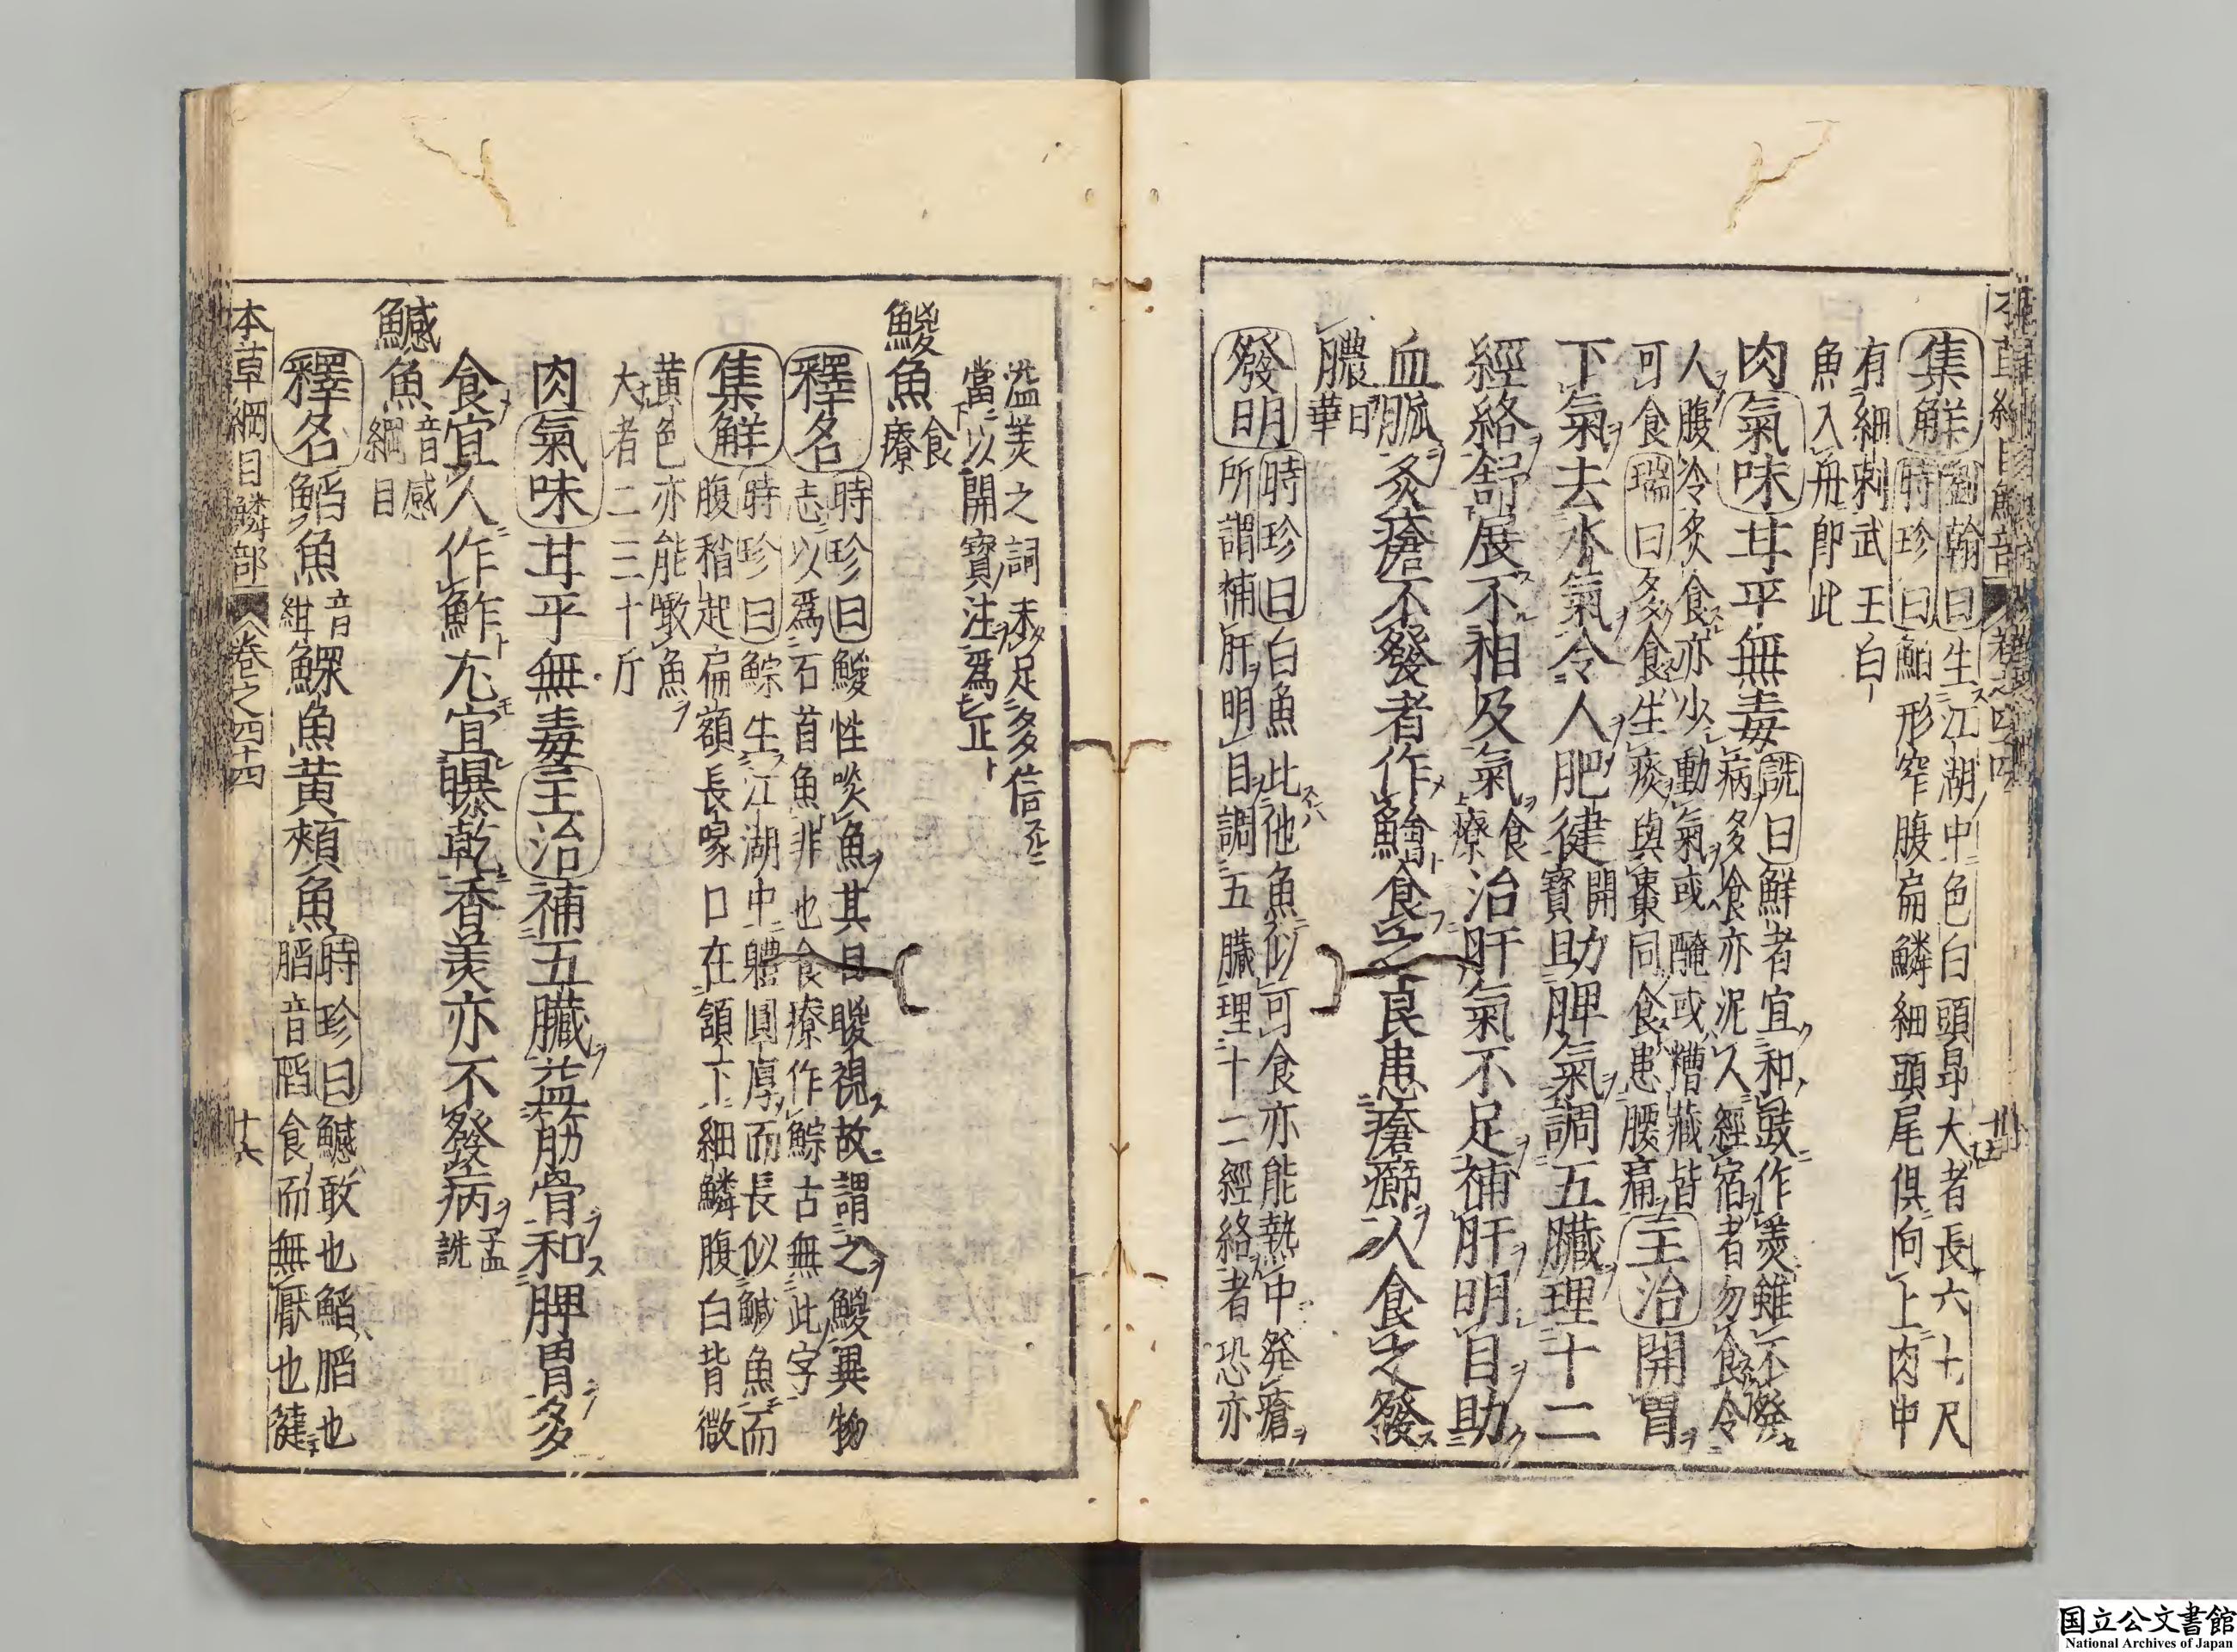 集觧
劉翰曰生江湖中色白頭昂大者長六七尺
時珍曰鮊形窄腹扁鱗細頭尾俱向上肉中
有細刺武王白
魚入舟卽此
肉氣味甘平無毒
詵曰鮮者宜和豉作羹雖不發
病多飡亦泥人經宿者勿食令
人腹冷炙食亦少動氣或醃或糟藏皆
可食瑞曰多食生痰與棗同食患腰痛
主治開胃
下氣去水氣令人肥健開寶助脾氣調五臟理十二
經絡舒展不相及氣食療治肝氣不足補肝明目助
血脈炙瘡不發者作鱠食之良患瘡癤人食之發
膿日華
發明
時珍曰白魚比他魚似可食亦能熱中発瘡
所謂補肝明目調五臟理十二經絡者恐亦
溢美之詞未足多信
當以開寶注爲正
鯼魚食療
釋名
時珍曰鯼性啖魚其目䁓視故謂之鯼異物
志以爲石首魚非也食療作鯮古無此字
集觧
時珍曰鯮生江湖中體圓厚而長似鱤魚而
腹稍起扁額長喙口在頷下細鱗腹白背微
黃色亦能噉魚
大者二三十斤
肉氣味甘平無毒主治補五臟益筋骨和脾胃多
食宜人作鮓尤宜曝乾香美亦不發病孟詵
鱤魚音感綱目
釋名鮥魚音紺鰥魚黃頰魚
時珍曰鱤敢也鮥䐄也
䐄音䧟食而無厭也健
本草綱目鱗部 卷之四十四 十六
国立公文書館
National Archives of Japan